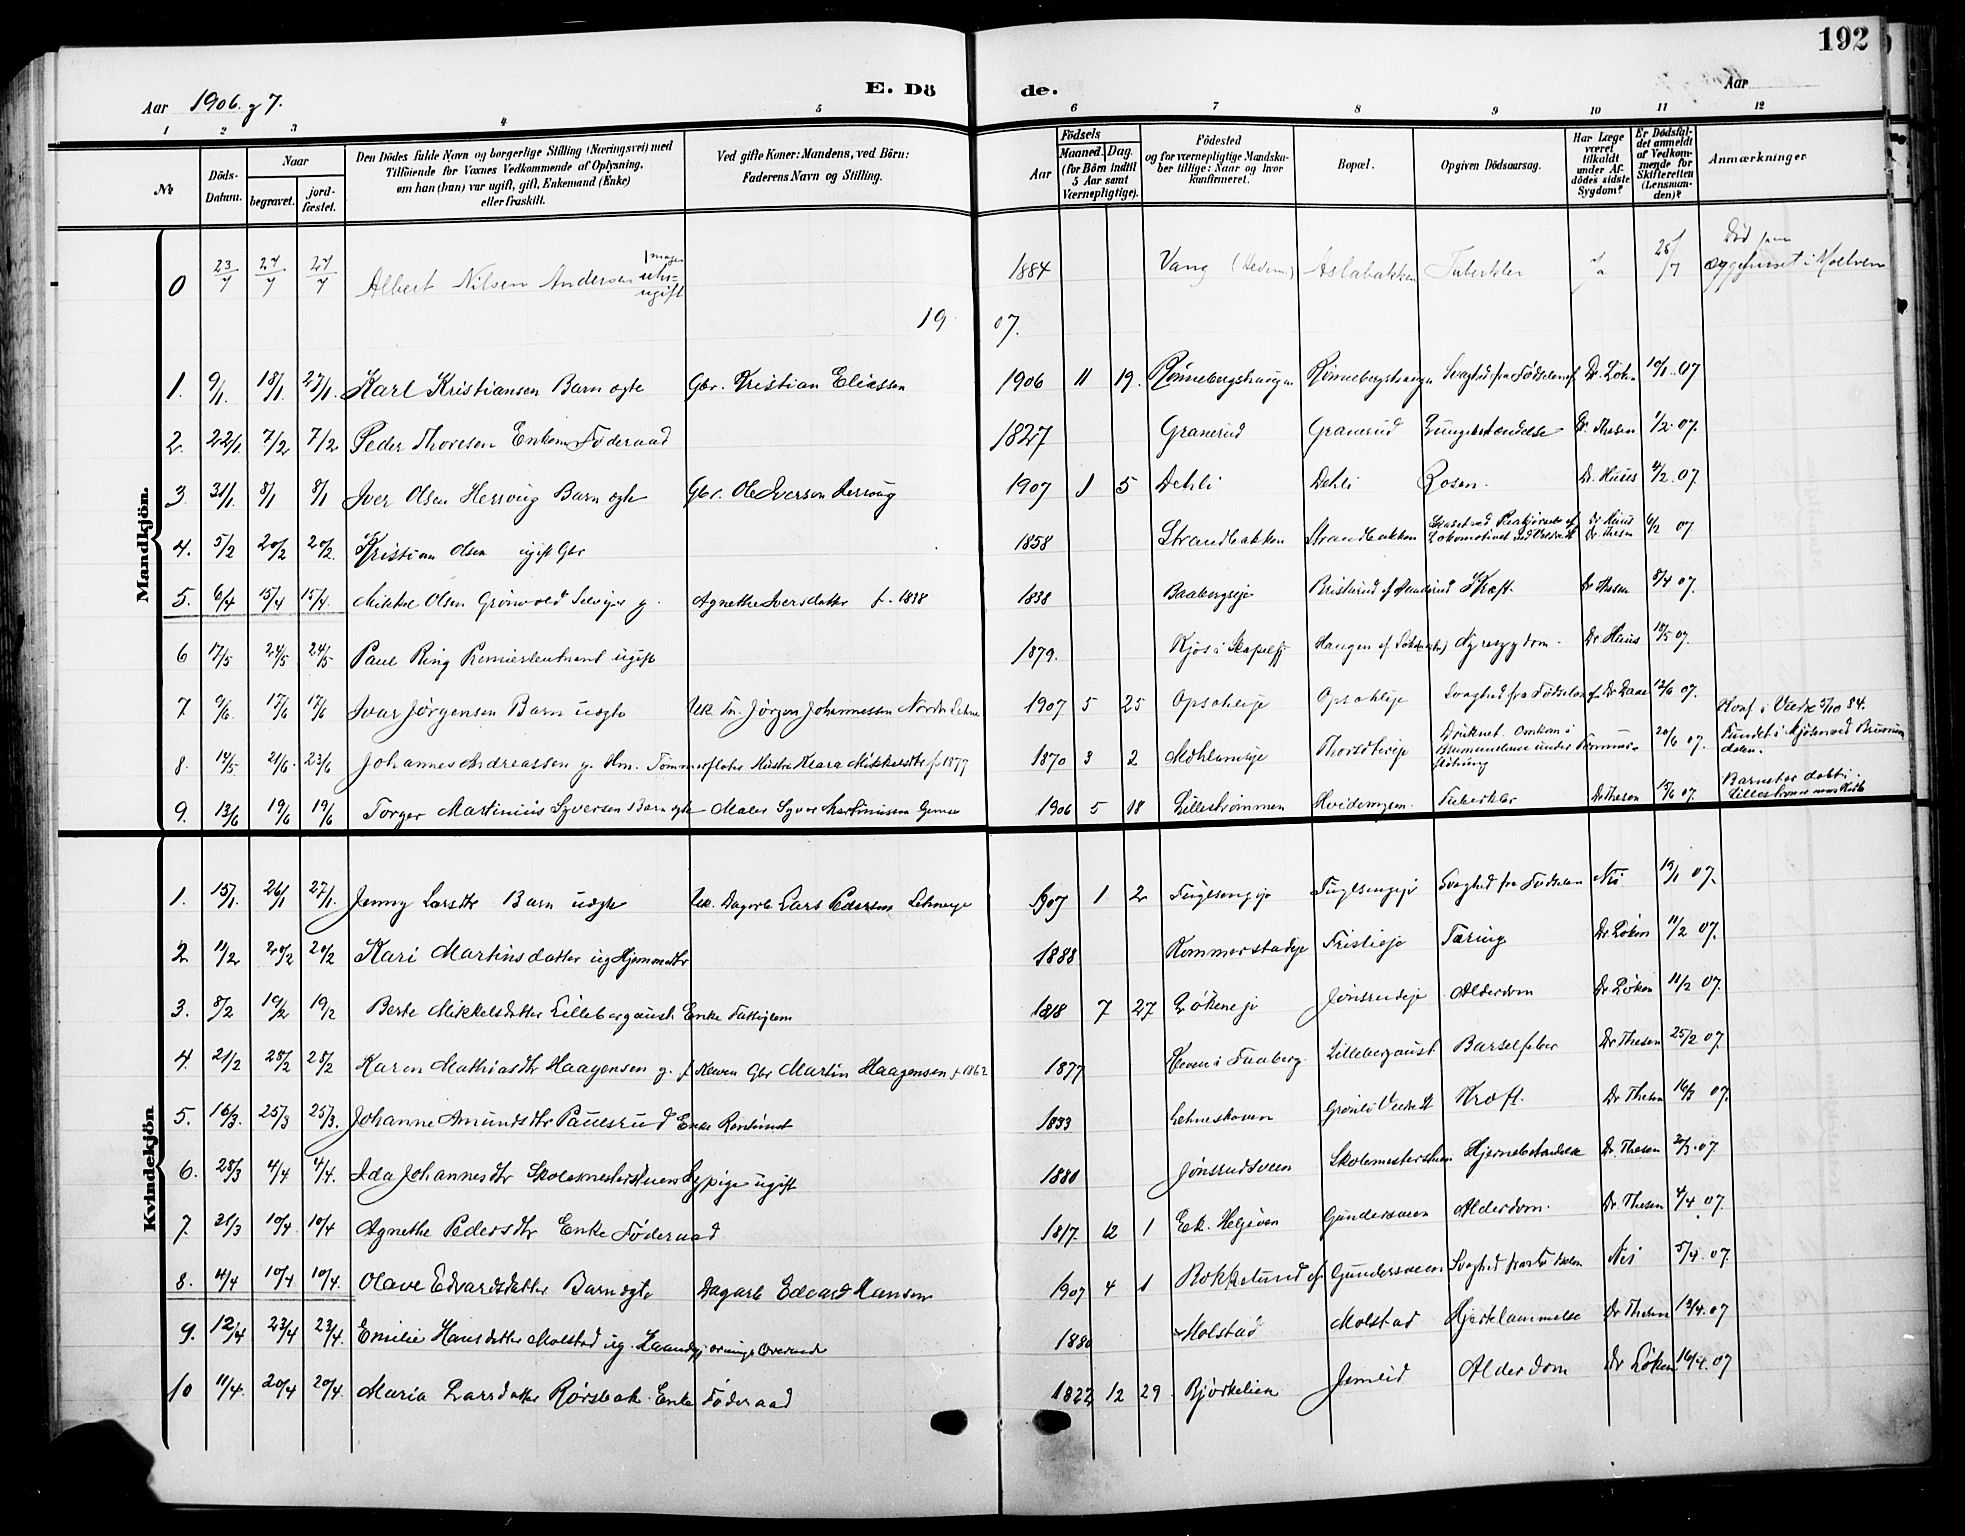 192
Aar 1906 og 7.
E. Dö
de.
Aar
1 2 3 4 5 6 7 8 9 10 11 12
No
Döds-Datum.
Naar
begravet.
jord-fæstet.
Den Dödes fulde Navn og borgerlige Stilling (Næringsvei) med
Tilföiende for Voxnes Vedkommende af Oplysning,
om han (hun) var ugift, gift, Enkemand (Enke)
eller fraskilt.
Ved gifte Koner: Mandens, ved Börn:
Faderens Navn og Stilling.
Födsels
Aar
Maaned. Dag.
(for Börn indtil
5 Aar samt
Værnepligtige).
Födested
og for værnepligtige Mandska-
ber tillige: Naar og hvor
konfirmeret.
Bopæl.
Opgiven Dödsaarsag.
Har Læge
været
tilkaldt
under Af-
dödes sidste
Sygdom?
Er Dödsfal-
det anmeldt
af Vedkom-
mende for
Skifteretten
(Lensman-
den)?
Anmærkninger
Mandkjön.
0 23/7 27/7 27/7 Albert Nilsen Andersen ugift 1884 Vang Aslabakken Tuberkler ja
Død paa sygehuset i Moelven
19 07.
1. 9/1. 18/1 27/1. Karl Kristiansen Barn ægte Gbr. Kristian Eliassen 1906 11 19. Rønnebergshaugen Rønnebergshaugen Svaghed fra Fødselen af Dr. Løken 10/1 07
2. 22/1. 7/2 7/2 Peder Thoresen Enkem. Føderaad 1827 Granerud Granerud Lungebetændelse Dr. Thesen 1/2 07.
3 31/1. 8/1 8/1 Iver Olsen Hersoug Barn ægte Gbr. Ole Iversen Hersoug 1907 1 5 Dehli Dehli Rosen. Dr. Huus 4/2 07.
4. 5/2 20/2 20/2. Kristian Olsen ugift Gbr 1858 Strandbakken Strandbakken Dr Huus Dr. Thesen 6/2 07
5. 6/4 15/4 15/4. Mikkel Olsen Grønvold Selveier g. Agnethe Iversdatter f. 1838 1838 Kræft. Dr Thesen 8/4 07.
6 17/5 24/5 24/5 Paul Ring Premierleutnant ugift 1879. Haugen Nyresygdom. Dr Huus 18/5 07.
7. 9/6. 17/6 17/6 Ivar Jørgensen Barn uægte Jørgen Johannessen 1907 5 25 Opsahleje Opsahleje Svaghed fra Fødselen af 12/6 07.
8. 14/5 21/6. 23/6 Johannes Andreassen g. Hm. Tømmerfløter Hustru Klara Mikkelsdtr f. 1877 1870 3 2 Druknet. Omkom i Brumundelven under Tømmerfløtning 20/6 07.
Konf. i Veldre 5/10 84. Fundet i Mjøsen ved Brumunddalen.
9. 13/6 19/6 19/6 Torger Martinius Syversen Barn ægte Maler Syver Martiniussen 1906 5 18 Lillestrømmen Tuberkler Dr Thesen 15/6 07.
Barnet er døbt i Lillestrømmens Kirke
Kvindekjön.
1. 15/1. 26/1 27/1. Jenny Larsdtr Barn uægte Dagarb. Lars Pedersen 1907 1. 2 Fuglsengeje Fuglsengeje Svaghed fra Fødselen Nei. 19/1 07.
2 11/2 20/2 20/2 Kari Martinsdatter ug. Hjemmedtr 1888 Kommerstadeje Tæring Dr. Løken 11/2 07.
3. 8/2 19/2 19/2 Berte Mikkelsdatter Lillebergaust. Enke Fattiglem 1818 7 27 Løkeneje Jønsrudeje Alderdom Dr Løken 11/2 07.
4. 21/2 28/2 28/2 Karen Mathiasdtr Haagensen g. Gbr Martin Haagensen f. 1862 1877 Faaberg. Lillebergaust Barselfeber Dr Thesen 25/2 07.
5. 16/3. 25/3 25/3. Johanne Amundsdtr Paulsrud Enke 1833 Kræft. Dr Thesen 16/3 07.
6. 28/3 4/4 4/4. Ida Johannesdtr Skolemesterstuen Sypige ugift 1880 Jønsrudsveen Skolemesterstuen Hjernebetændelse Dr. Thesen 20/3. 07
7. 31/3 10/4 10/4 Agnethe Pedersdtr Enke Føderaad 1817. 12 1 Gundersveen Alderdom. Dr Thesen 4/4 07.
8. 4/4 10/4 10/4. Olave Edvardsdatter Barn ægte Dagarb Edvard Hansen 1907 4 1 Gundersveen Svaghed fra Fødselen Nei 5/4. 07.
9. 12/4 23/4 23/4. Emilie Hansdatter Molstad ug. 1880 Molstad Molstad Hjertelammelse Dr Thesen 13/4. 07
10 11/4. 20/4 20/4. Maria Larsdatter Rørsbak. Enke Føderaad 1822 12 29 Bjørkelien Alderdom Dr Løken 16/4. 07